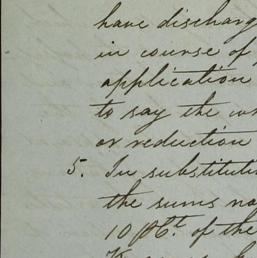 have discharg
in course of
application
to say the
or reduction
5. In substitut
the sums na
10 p Ct. of the